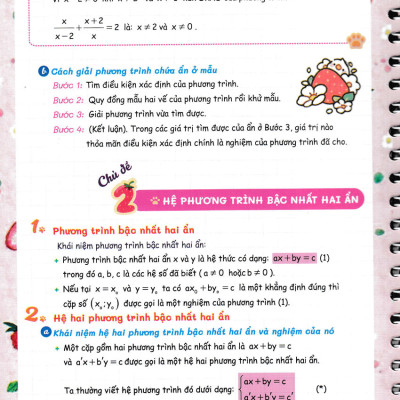 x/(x−2) + (x+2)/x = 2 là: x ≠ 2 và x ≠ 0 .
b Cách giải phương trình chứa ẩn ở mẫu
Bước 1: Tìm điều kiện xác định của phương trình.
Bước 2: Quy đồng mẫu hai vế của phương trình rồi khử mẫu.
Bước 3: Giải phương trình vừa tìm được.
Bước 4: (Kết luận). Trong các giá trị tìm được của ẩn ở Bước 3, giá trị nào
thỏa mãn điều kiện xác định chính là nghiệm của phương trình đã cho.
Chủ đề
2 HỆ PHƯƠNG TRÌNH BẬC NHẤT HAI ẨN
1 Phương trình bậc nhất hai ẩn
Khái niệm phương trình bậc nhất hai ẩn:
+ Phương trình bậc nhất hai ẩn x và y là hệ thức có dạng: ax + by = c (1)
trong đó a, b, c là các hệ số đã biết ( a ≠ 0 hoặc b ≠ 0 ).
+ Nếu tại x = x₀ và y = y₀ ta có ax₀ + by₀ = c là một khẳng định đúng thì
cặp số (x₀; y₀) được gọi là một nghiệm của phương trình (1).
2 Hệ hai phương trình bậc nhất hai ẩn
a Khái niệm hệ hai phương trình bậc nhất hai ẩn và nghiệm của nó
• Một cặp gồm hai phương trình bậc nhất hai ẩn là ax + by = c
và a'x + b'y = c' được gọi là một hệ hai phương trình bậc nhất hai ẩn.
Ta thường viết hệ phương trình đó dưới dạng: { ax + by = c (*)
a'x + b'y = c'